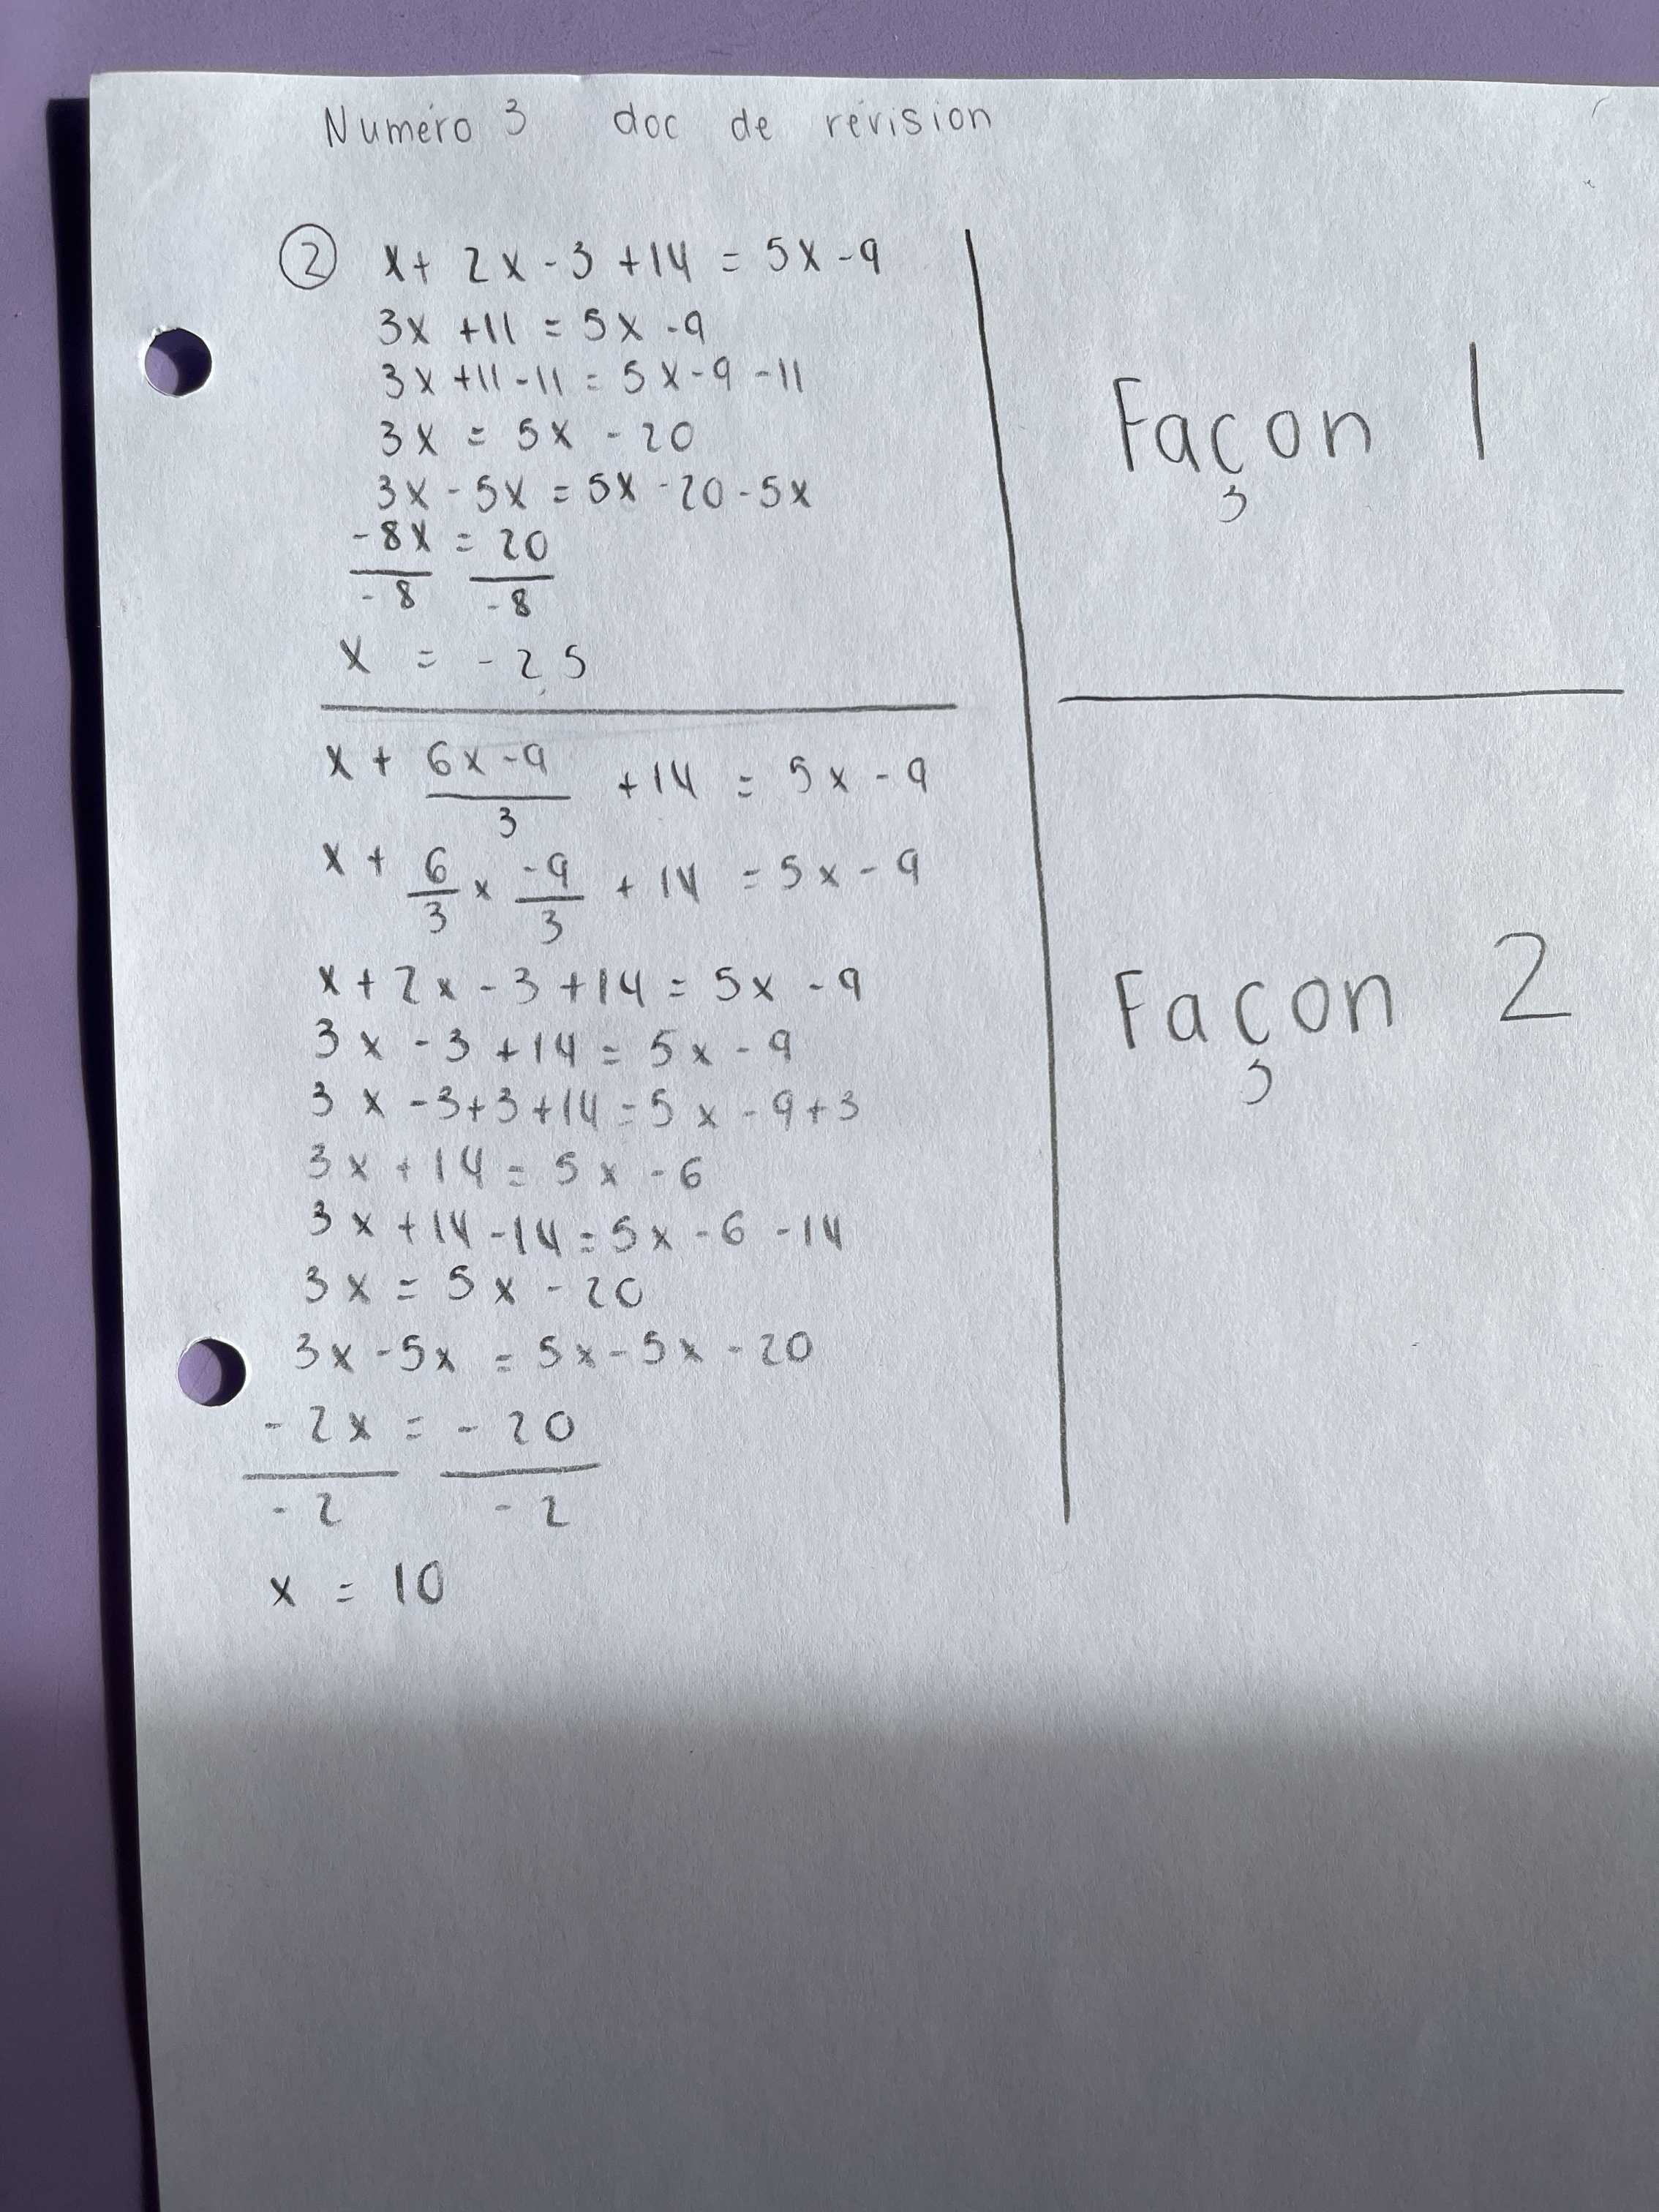 Numéro 3 doc de révision
② x + 2x - 3 + 14 = 5x - 9
3x + 11 = 5x - 9
3x + 11 - 11 = 5x - 9 - 11
3x = 5x - 20
3x - 5x = 5x - 20 - 5x
-8x = 20
-8 -8
x = -2,5
Façon 1
x + 6x - 9 + 14 = 5x - 9
3
x + 6 x -9 + 14 = 5x - 9
3 3
x + 2x - 3 + 14 = 5x - 9
3x - 3 + 14 = 5x - 9
3x - 3 + 3 + 14 = 5x - 9 + 3
3x + 14 = 5x - 6
3x + 14 - 14 = 5x - 6 - 14
3x = 5x - 20
3x - 5x = 5x - 5x - 20
-2x = -20
-2 -2
x = 10
Façon 2